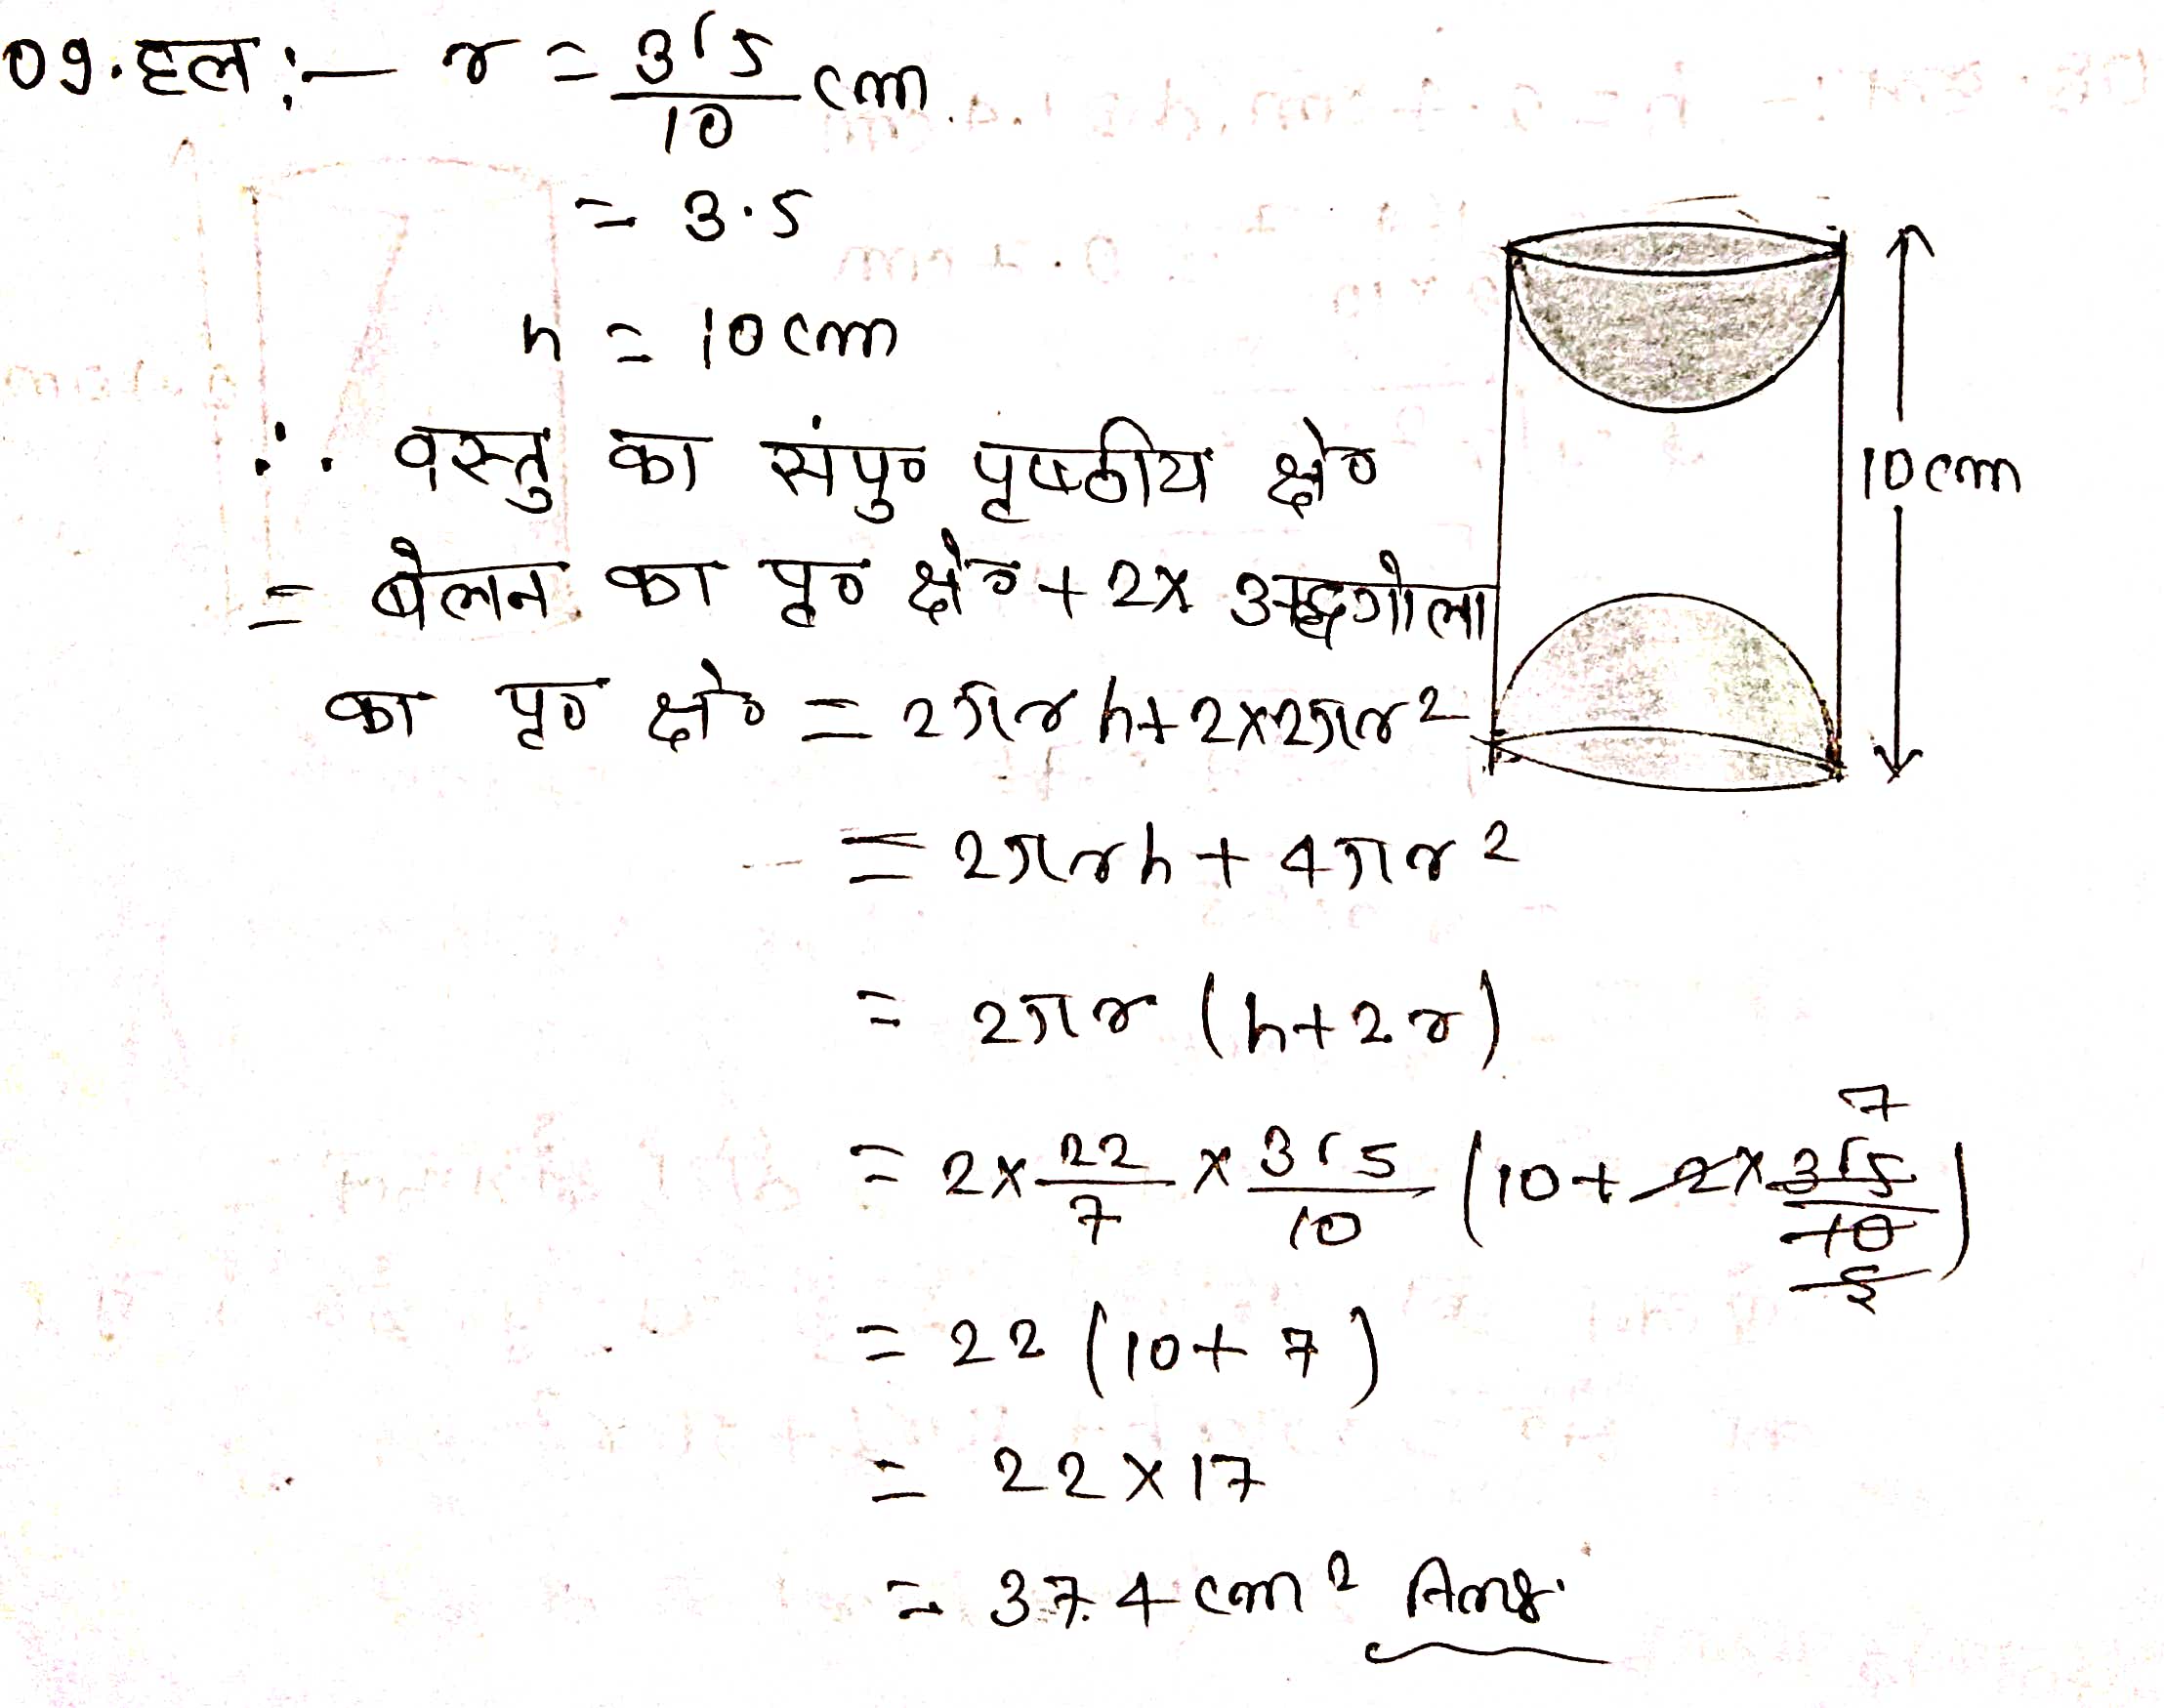 09. हल :— r = 315/10 cm.
= 3.5
h = 10 cm
∴ वस्तु का संपु० पृष्ठीय क्षे०
10 cm
= बेलन का पृ० क्षे० + 2x अर्द्धगोला
का पृ० क्षे० = 2πrh + 2x2πr²
= 2πrh + 4πr²
= 2πr (h+2r)
= 2x 22/7 x 315/10 (10+ 2x 315/10) 7 5
= 22 (10+7)
= 22 x 17
= 374 cm² Ans.